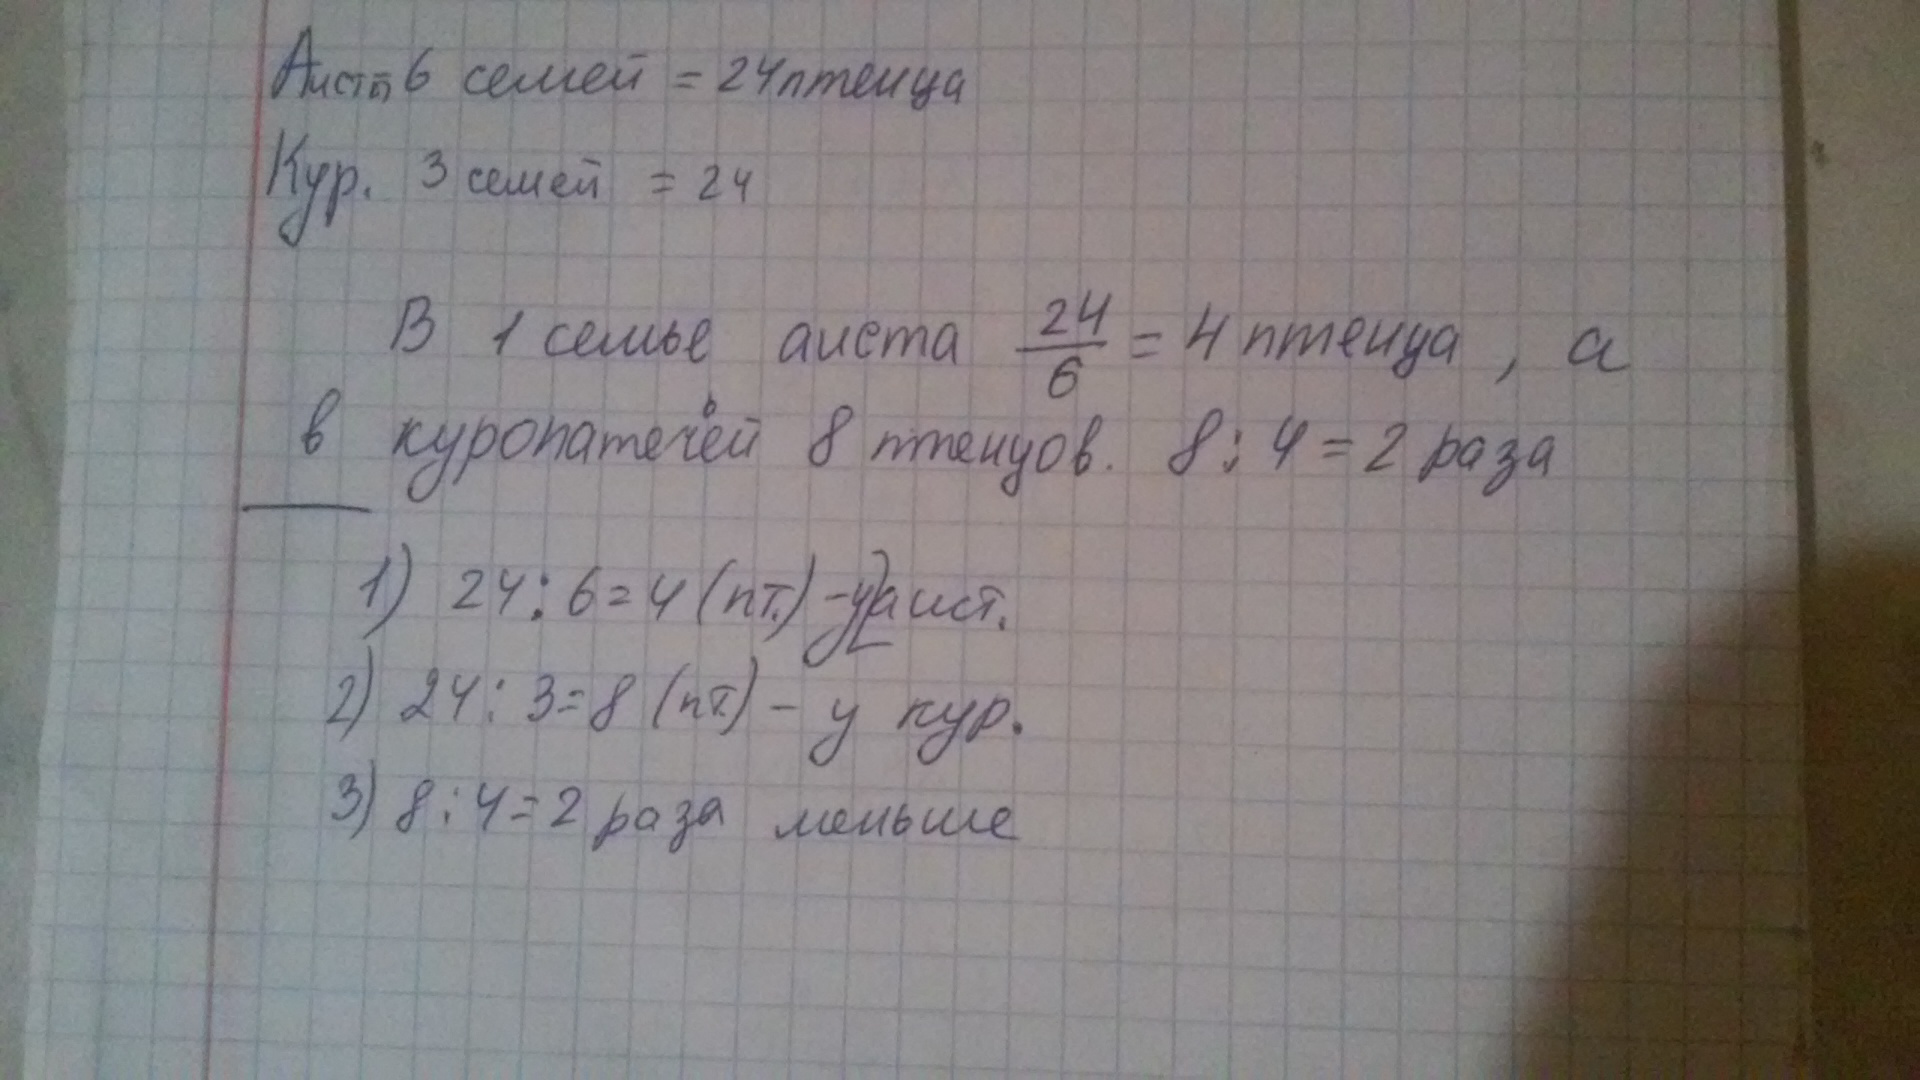 Аисты 6 семей = 24 птенца
Кур. 3 семей = 24
В 1 семье аиста 24/6 = 4 птенца, а
в куропатечьей 8 птенцов. 8 : 4 = 2 раза
1) 24 : 6 = 4 (пт.) - у аист.
2) 24 : 3 = 8 (пт.) - у кур.
3) 8 : 4 = 2 раза меньше